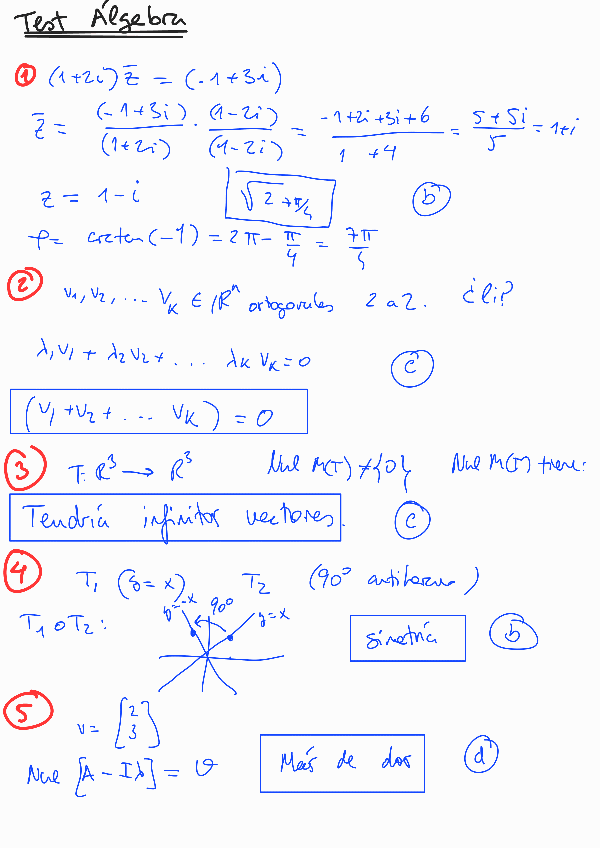 Test Álgebra
① (1+2i) z̄ = (-1+3i)
z̄ = (-1+3i)/(1+2i) · (1-2i)/(1-2i) = (-1+2i+3i+6)/(1+4) = (5+5i)/5 = 1+i
z = 1-i √2 7π/4 b
φ= arctan(-1) = 2π - π/4 = 7π/4
② v₁, v₂, ... Vₖ ∈ ℝⁿ ortogonales 2 a 2. ¿li?
λ₁v₁ + λ₂v₂ + ... λₖ vₖ = 0 c
(v₁ + v₂ + ... vₖ) = 0
③ T: R³ → R³ Nul M(T) ≠ {0} Nul M(T) tiene:
Tendría infinitos vectores. c
④ T₁ (y = x) T₂ (90° antihorario)
T₁ o T₂: y=-x 90° y=x simetría b
⑤ v = [2 3]
Nul [A - Iλ] = v Más de dos d